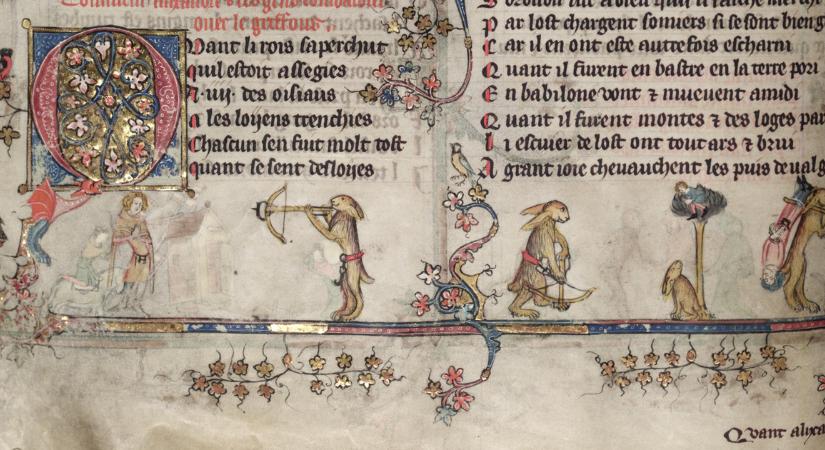 ouer le griffons.
Quant li rois saperchut
quil estoit assegies
A .iiij. des oisiaus
a les loijens trenchies
Chascun sen fuit molt tost
quant se sent desloijes
P ar lost chargent souuers si se sont bien g
C ar il en ont este autrefois escharni
Q uant il furent en bastre en la terre pori
E n babilone vont ⁊ mueuent amidi
Q uant il furent montes ⁊ des loges par
L i escuier de lost ont tout ars ⁊ brui
A grant ioie cheuauchent les puis de ualg
Quant alixa